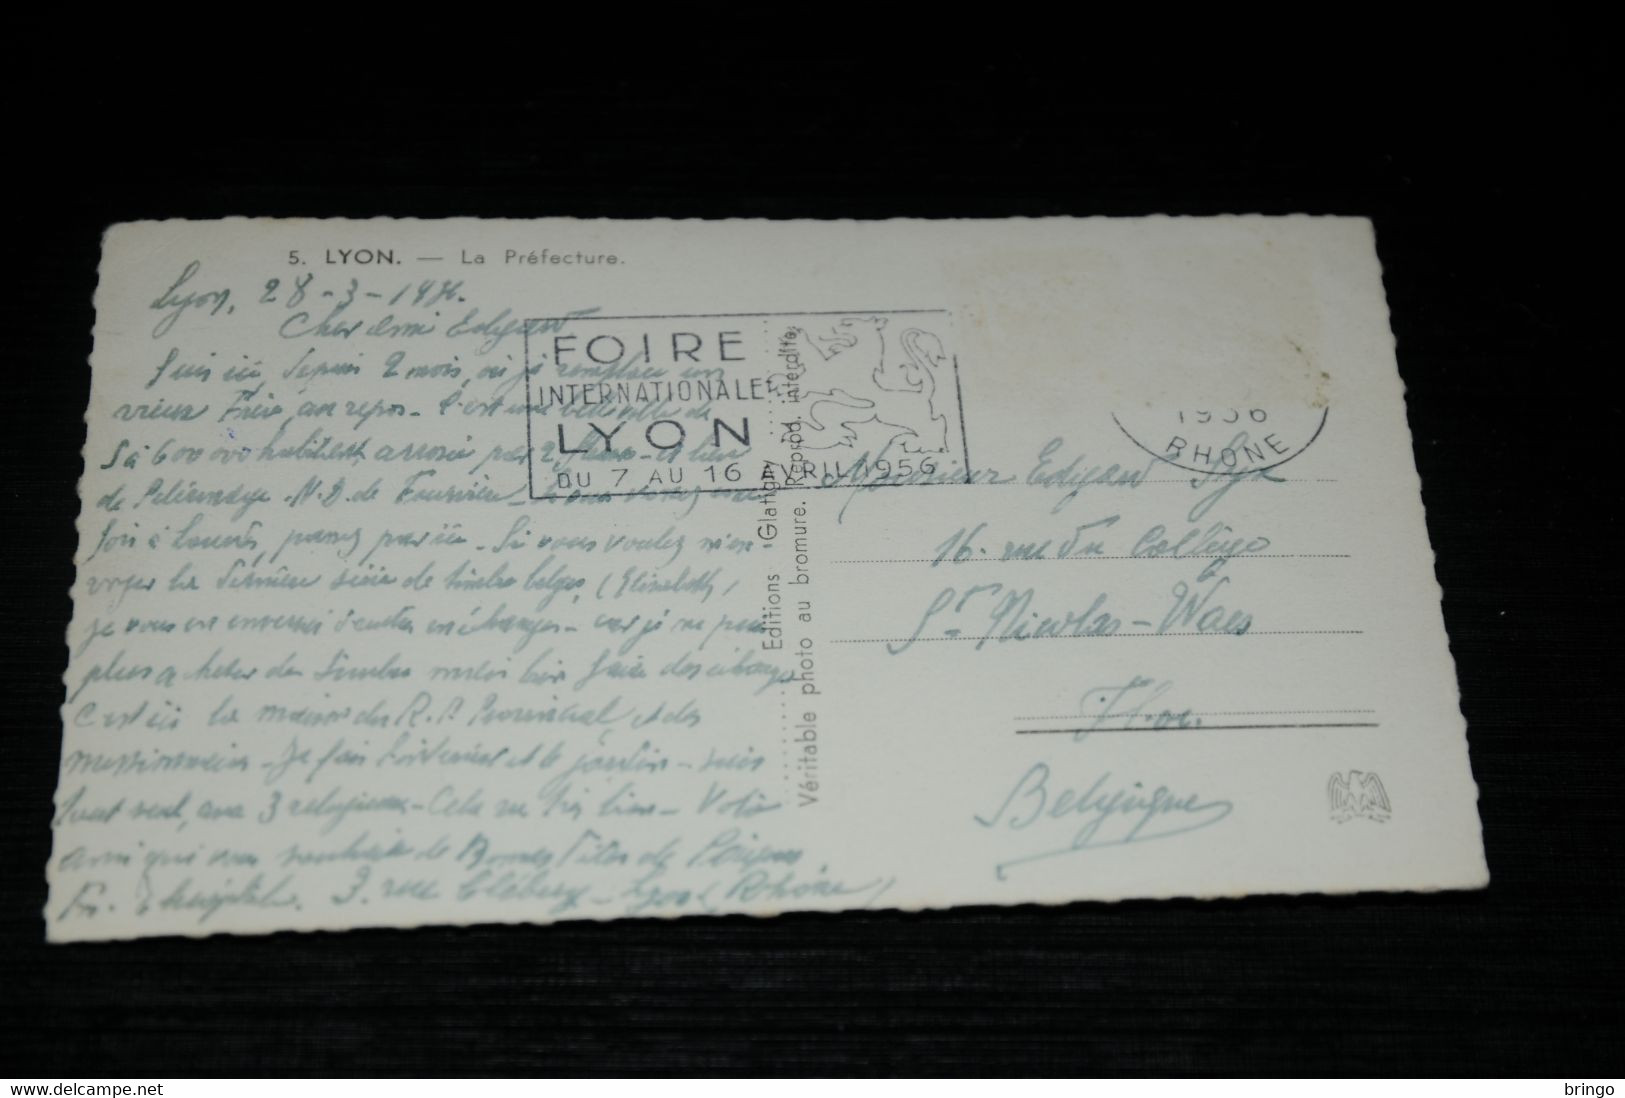 5. LYON. — La Préfecture.
Lyon, 28-3-1956.
Cher ami Edgard
Suis ici depuis 2 mois, où je remplace un
vieux Frère, au repos - C'est une belle ville de
5 à 600 000 habitants, arrosée par 2 fleuves - et lieu
de Pèlerinage N.D. de Fourvière - Si vous venez une
fois à Lourdes, passez par ici - Si vous voulez m'en-
voyer la dernière série de timbres belges, (Elisabeth)
je vous en enverrai d'autres en échanges - car je ne peux
plus acheter de timbres mais bien faire des échanges
C'est ici la maison du R.P. Provincial et des
missionnaires - Je fais et le jardin - suis
tout seul, avec 3 religieux - Cela va très bien - Voilà
ami qui vous souhaite de Bonnes Fêtes de Pâques.
Fr. 3. rue Lyon (Rhône)
FOIRE
INTERNATIONALE
LYON
DU 7 AU 16 AVRIL 1956
1956
RHONE
Editions Glatigny
Véritable photo au bromure. Reprod. interdite
Monsieur Edgard
16. rue du Collège
St Nicolas-Waes
Fl. or.
Belgique
https://www.delcampe.net
bringo